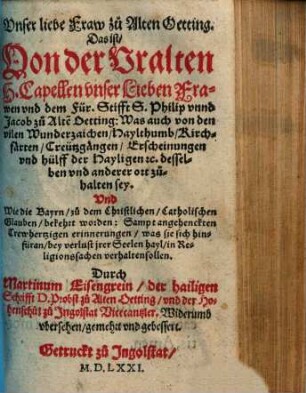 Unser liebe Fraw zů Alten Oetting.
Das ist/
Von der Uralten
H. Capellen unser Lieben Fra-
wen und dem Für. Stifft S. Philip unnd
Jacob zů Altē Oetting: Was auch von den
vilen Wunderzaichen/Haylthumb/Kirch-
färten/Creützgängen/Erscheinungen
und hülff der Hayligen ꝛc. dessel-
ben und anderer ort zů-
halten sey.
Und
Wie die Bayrn/zů dem Christlichen/Catholischen
Glauben/bekehrt worden: Sampt angehenckten
Trewhertzigen erinnerungen/was sie sich hin-
füran/bey verlust jrer Seelen hayl/in Re-
ligionssachen verhalten sollen.
Durch
Martinum Eisengrein/der hailigen
Schrifft D. Probst zů Alten Oetting/und der Ho-
henschůl zů Ingolstat Vicecantzler. Widerumb
ubersehen/gemehrt und gebessert.
Getruckt zů Ingolstat/
M.D.LXXI.